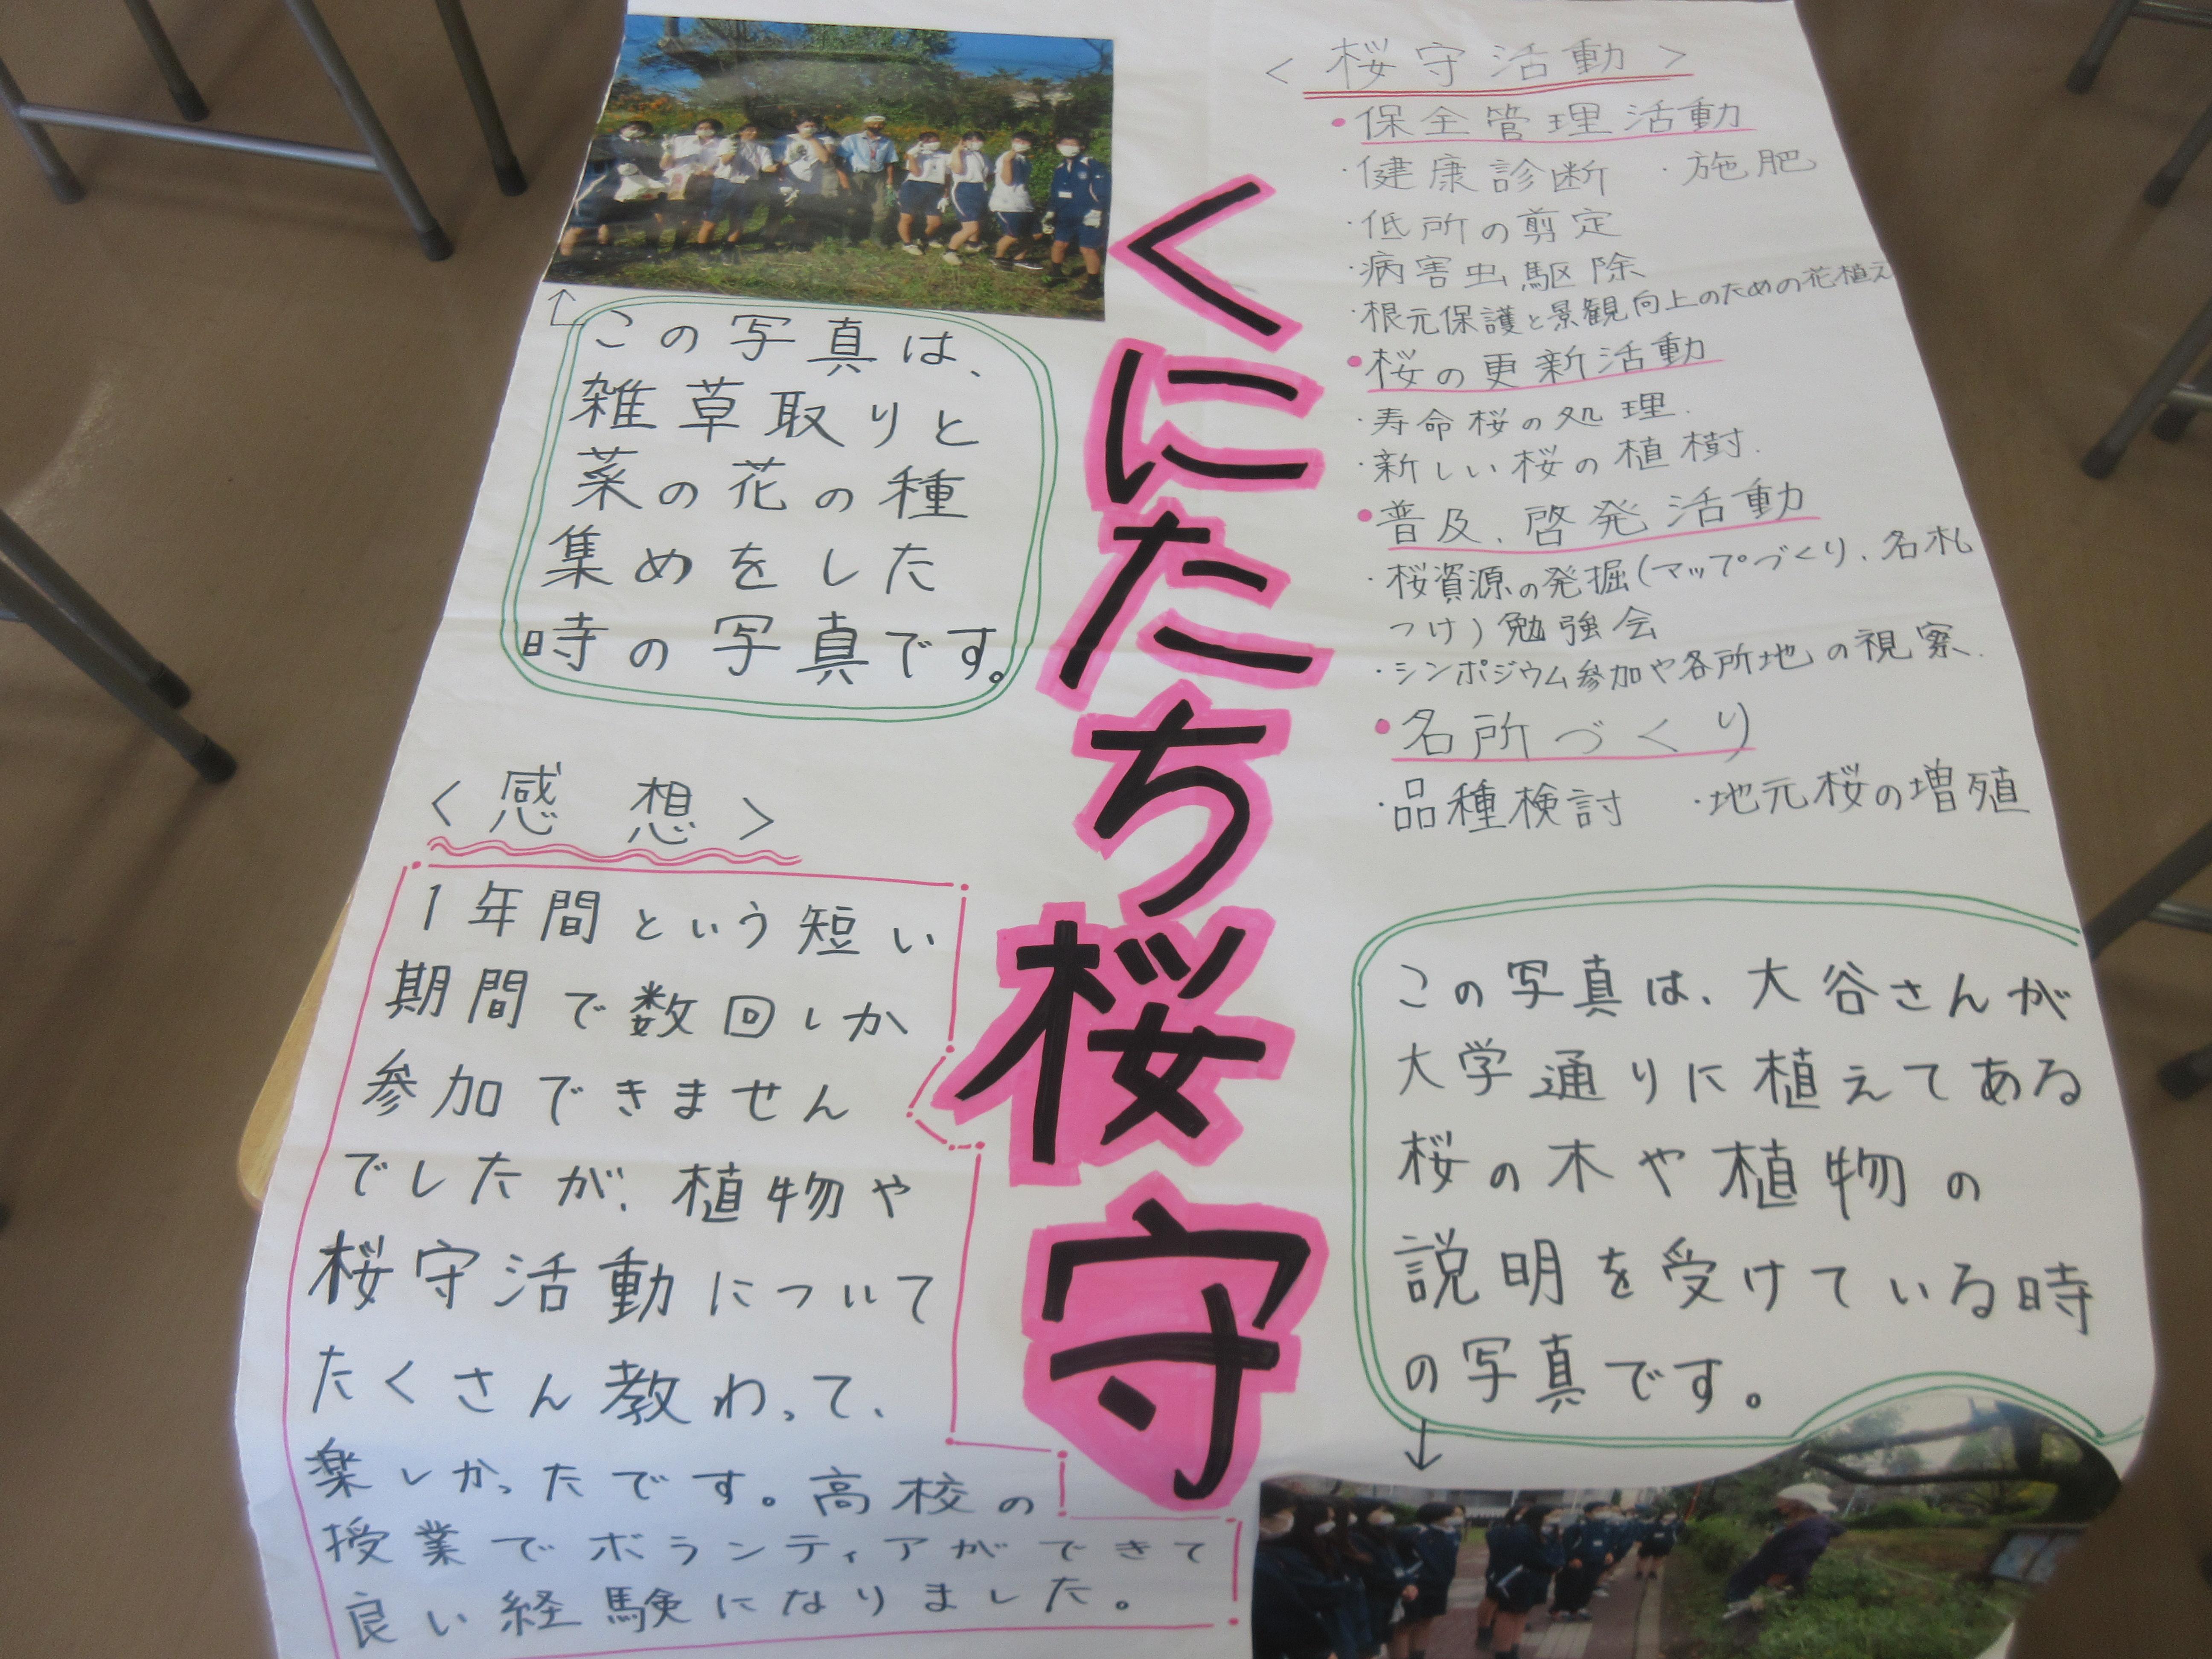 くにたち桜守
<桜守活動>
・保全管理活動
・健康診断 ・施肥
・低所の剪定
・病害虫駆除
・根元保護と景観向上のための花植え
・桜の更新活動
・寿命桜の処理.
・新しい桜の植樹.
・普及、啓発活動
・桜資源の発掘(マップづくり、名札
つけ)勉強会
・シンポジウム参加や各所地の視察.
・名所づくり
・品種検討 ・地元桜の増殖
この写真は、
雑草取りと
菜の花の種
集めをした
時の写真です。
<感想>
1年間という短い
期間で数回しか
参加できません
でしたが、植物や
桜守活動について
たくさん教わって、
楽しかったです。高校の
授業でボランティアができて
良い経験になりました。
この写真は、大谷さんが
大学通りに植えてある
桜の木や植物の
説明を受けている時
の写真です。